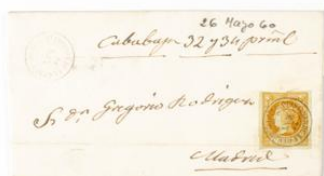 26 Mayo 60
Cababaja 32 y 34 prinl
Sr dn Gregorio Rodriguez
Madrid